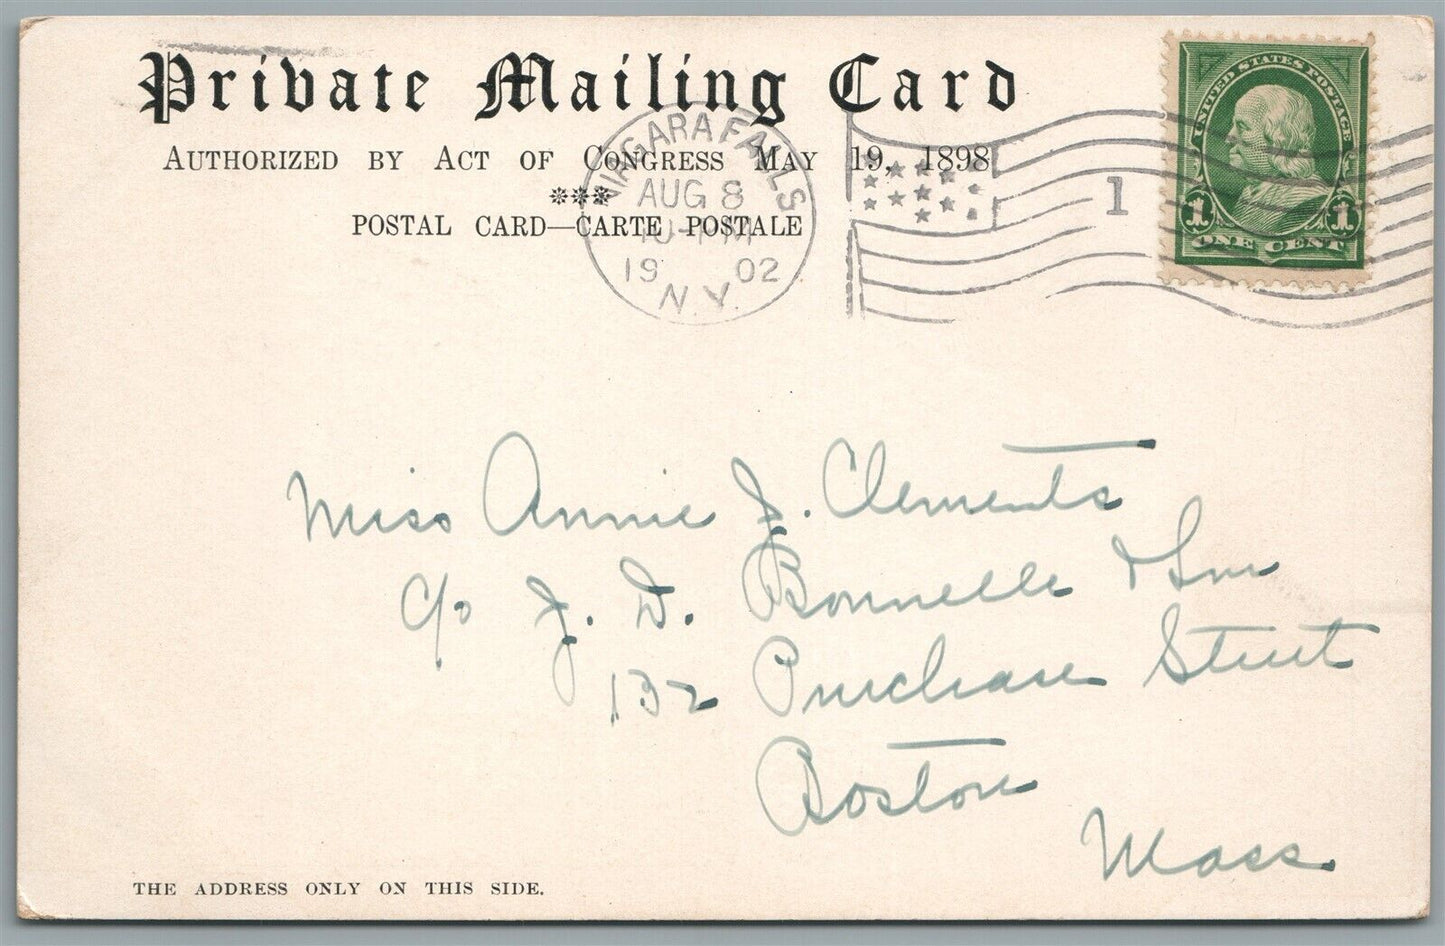 Private Mailing Card
AUTHORIZED BY ACT OF CONGRESS MAY 19, 1898
POSTAL CARD—CARTE POSTALE
NIAGARA FALLS
AUG 8
19 02
N.Y.
1
UNITED STATES POSTAGE
1 1
ONE CENT
Miss Annie J. Clements
c/o J. D. Bonnelle & Son
132 Purchase Street
Boston
Mass.
THE ADDRESS ONLY ON THIS SIDE.